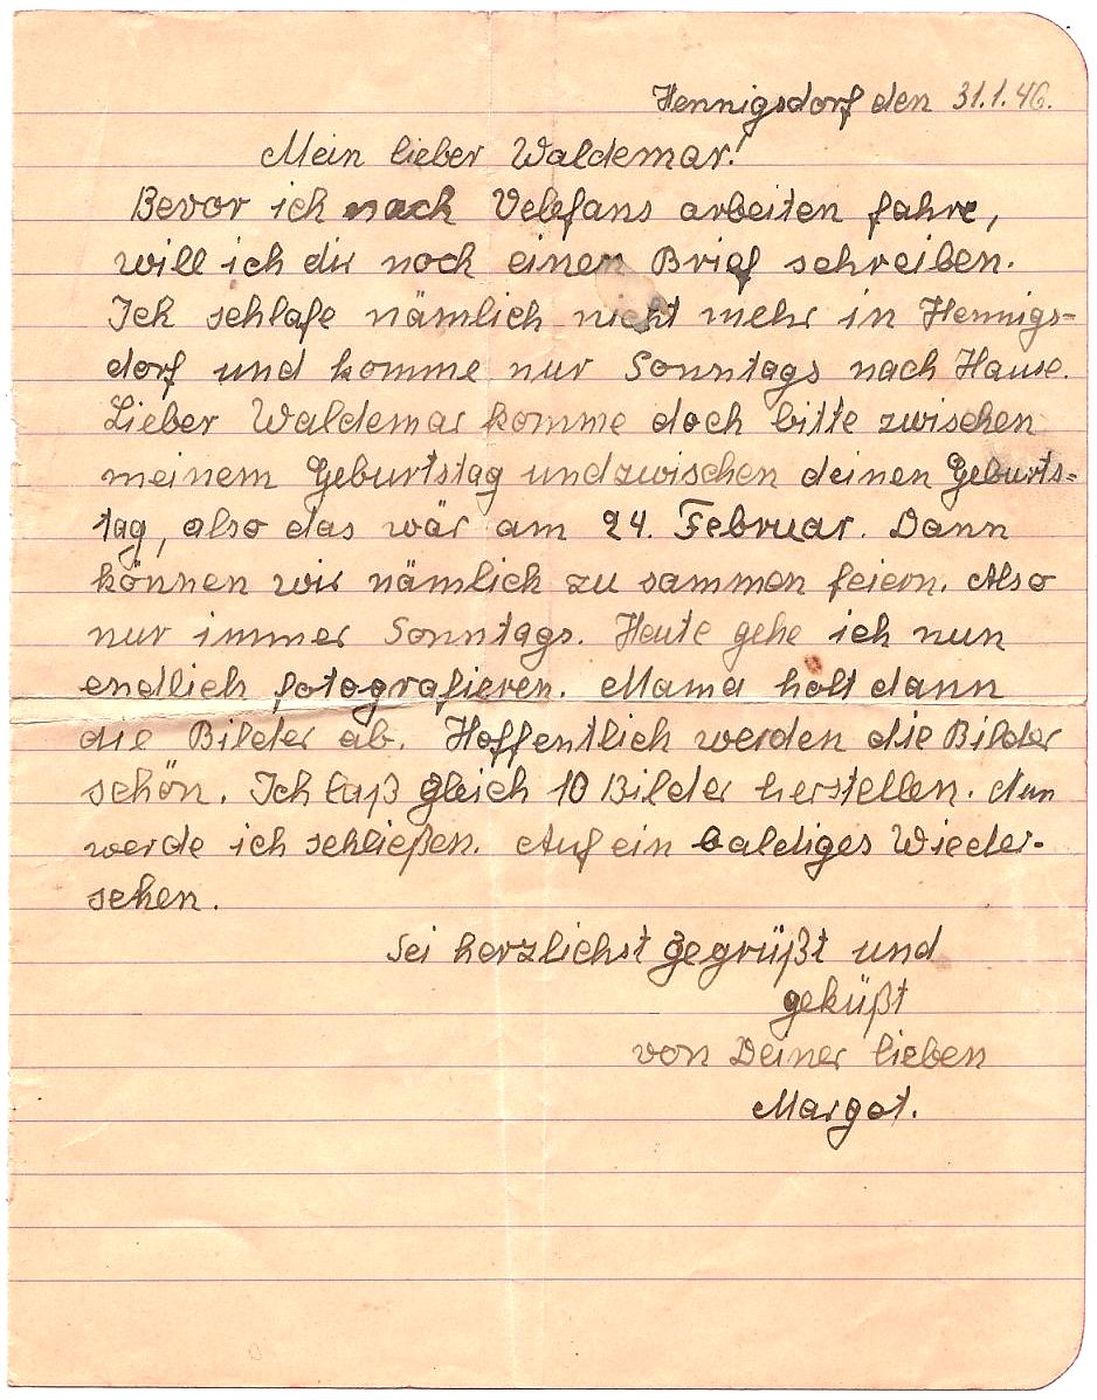 Hennigsdorf den 31.1.46.
Mein lieber Waldemar!
Bevor ich nach Velefans arbeiten fahre,
will ich dir noch einen Brief schreiben.
Ich schlafe nämlich nicht mehr in Hennigs=
dorf und komme nur Sonntags nach Hause.
Lieber Waldemar komme doch bitte zwischen
meinem Geburtstag und zwischen deinen Geburts=
tag, also das wär am 24. Februar. Dann
können wir nämlich zu sammen feiern. Also
nur immer Sonntags. Heute gehe ich nun
endlich fotografieren. Mama holt dann
die Bilder ab. Hoffentlich werden die Bilder
schön. Ich laß gleich 10 Bilder herstellen. Nun
werde ich schließen. Auf ein baldiges Wieder-
sehen.
Sei herzlichst gegrüßt und
geküßt
von Deiner lieben
Margot.